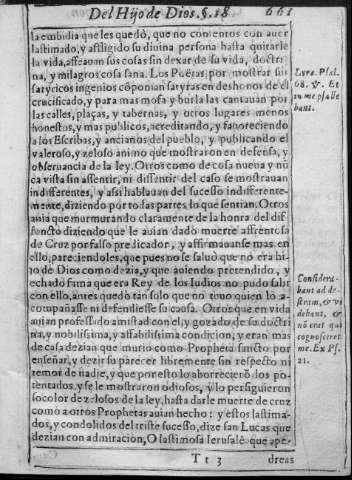 Del Hijo de Dios. §. 18    661
la embidia que les quedò, que no contentos con auer
lastimado, y afligido su diuina persona hasta quitarle
la vida, afeauan sus cosas sin dexar de su vida, doctri
na, y milagros cosa sana. Los Poëtas por mostrar sus
satyricos ingenios cõponian satyras en deshonos de el
crucificado, y para mas mofa y burla las cantauan por
las calles, plaças, y tabernas, y otros lugares menos
honestos, y mas publicos, acreditando, y fauoreciendo
a los Escribas, y ancianos del pueblo, y publicando el
valeroso, y zeloso animo que mostraron en defensa, y
obseruancia de la ley. Otros como de cosa nueua y nũ
ca vista sin assentir, ni dissentir del caso se mostrauan
indifferentes, y assi hablauan del sucesso indifferente-
mente, diziendo por todas partes lo que sentian. Otros
auia que murmurando claramente de la honra del dif
functo diziendo que le auian dado muerte affrentosa
de Cruz por falso predicador, y affirmauanse mas en
ello, pareciendoles, que pues no se saluò que no era hi
jo de Dios como dezia, y que auiendo pretendido, y
echado fama que era Rey de los Iudios no pudo salir
con ello, antes quedò tan solo que no tuuo quien lo a
compañasse ni defendiesse su causa. Otros que en vida
auian professado amistad con el, y gozado de su doctri
na, y nobilissima, y affabilissima condicion; y eran mas
de casa dezian que murio como Propheta sancto por
enseñar, y dezir su parecer libremente sin respecto ni
temor de nadie, y que por esto lo aborrecierõ los po-
tentados, y se le mostraron odiosos, y lo persiguieron
so color de zelosos de la ley, hasta darle muerte de cruz
como a otros Prophetas auian hecho: y estos lastima-
dos, y condolidos del triste sucesso, dize san Lucas que
dezian con admiracion, O lastimosa Ierusalẽ que ape-
Tt 3    dreas
68. &. Et
in me psalle
bant.
Considera-
bant ad de-
xtram, & vi
debant, &
nõ erat qui
cognosceret
me. Ex Ps.
21.